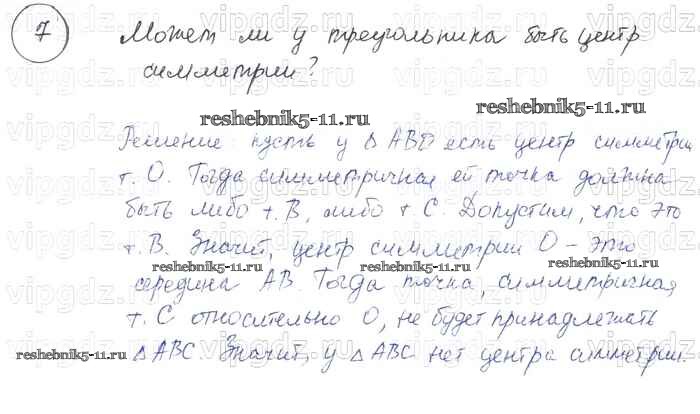 7 Может ли у треугольника быть центр
симметрии?
reshebnik5-11.ru reshebnik5-11.ru
Решение: пусть у △ АВС есть центр симметрии
т. О. Тогда симметричная ей точка должна
быть либо т. В, либо т С. Допустим, что это
т. В. Значит, центр симметрии О – это
reshebnik5-11.ru reshebnik5-11.ru reshebnik5-11.ru
середина АВ. Тогда точка, симметричная
т. С относительно О, не будет принадлежать
reshebnik5-11.ru
△ АВС. Значит, у △ АВС нет центра симметрии.
vipgdz.ru